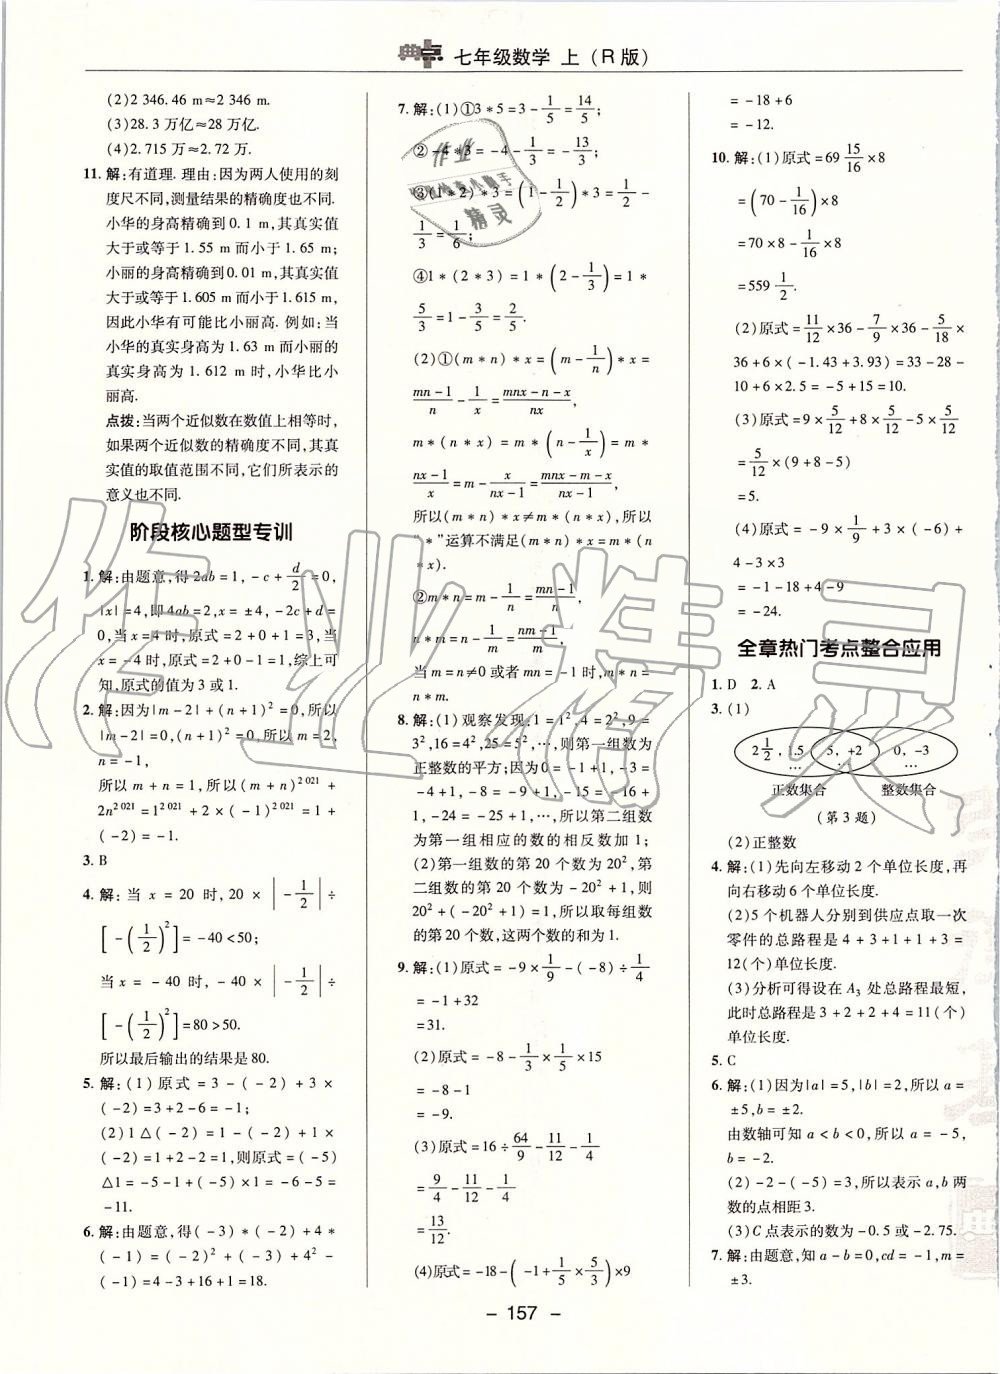 典点 七年级数学 上(R版)
(2)2 346.46 m≈2 346 m.
(3)28.3 万亿≈28 万亿.
(4)2.715 万≈2.72 万.
11. 解:有道理. 理由:因为两人使用的刻
度尺不同,测量结果的精确度也不同.
小华的身高精确到 0.1 m,其真实值
大于或等于 1.55 m 而小于 1.65 m;
小丽的身高精确到 0.01 m,其真实值
大于或等于 1.605 m 而小于 1.615 m,
因此小华有可能比小丽高. 例如:当
小华的真实身高为 1.63 m 而小丽的
真实身高为 1.612 m 时,小华比小
丽高.
点拨:当两个近似数在数值上相等时,
如果两个近似数的精确度不同,其真
实值的取值范围不同,它们所表示的
意义也不同.
阶段核心题型专训
1. 解:由题意,得 2ab=1,-c+d/2=0,
|x|=4,即 4ab=2,x=±4,-2c+d=
0,当 x=4 时,原式=2+0+1=3,当
x=-4 时,原式=2+0-1=1,综上可
知,原式的值为 3 或 1.
2. 解:因为|m-2|+(n+1)²=0,所以
|m-2|=0,(n+1)²=0,所以 m=2,
n=-1,
所以 m+n=1,所以(m+n)²⁰²¹+
2n²⁰²¹=1²⁰²¹+2×(-1)²⁰²¹=1+
(-2)=-1.
3. B
4. 解:当 x=20 时,20×|-1/2|÷
[-(1/2)²]=-40<50;
当 x=-40 时,-40×|-1/2|÷
[-(1/2)²]=80>50.
所以最后输出的结果是 80.
5. 解:(1)原式=3-(-2)+3×
(-2)=3+2-6=-1;
(2)1△(-2)=1-(-2)+1×
(-2)=1+2-2=1,则原式=(-5)
△1=-5-1+(-5)×1=-6-5=
-11.
6. 解:由题意,得(-3)*(-2)+4*
(-1)=(-2)²+(-3)+4²+
(-1)=4-3+16+1=18.
7. 解:(1)①3*5=3-1/5=14/5;
②-4*3=-4-1/3=-13/3;
③(1*2)*3=(1-1/2)*3=1/2-
1/3=1/6;
④1*(2*3)=1*(2-1/3)=1*
5/3=1-3/5=2/5.
(2)①(m*n)*x=(m-1/n)*x=
(mn-1)/n-1/x=(mnx-n-x)/nx,
m*(n*x)=m*(n-1/x)=m*
(nx-1)/x=m-x/(nx-1)=(mnx-m-x)/(nx-1),
所以(m*n)*x≠m*(n*x),所以
“*”运算不满足(m*n)*x=m*(n
*x).
②m*n=m-1/n=(mn-1)/n,
n*m=n-1/m=(nm-1)/m,
当 m=n≠0 或者 mn=1 时,m*n=
n*m.
8. 解:(1)观察发现:1=1²,4=2²,9=
3²,16=4²,25=5²,…,则第一组数为
正整数的平方;因为 0=-1+1,-3=
-4+1,-8=-9+1,-15=-16+
1,-24=-25+1,…,所以第二组数
为第一组相应的数的相反数加 1;
(2)第一组数的第 20 个数为 20²,第
二组数的第 20 个数为-20²+1,则
20²+(-20²+1)=1,所以取每组数
的第 20 个数,这两个数的和为 1.
9. 解:(1)原式=-9×1/9-(-8)÷1/4
=-1+32
=31.
(2)原式=-8-1/3×1/5×15
=-8-1
=-9.
(3)原式=16÷64/9-11/12-1/4
=9/4-11/12-1/4
=13/12.
(4)原式=-18-(-1+1/5×5/3)×9
=-18+6
=-12.
10. 解:(1)原式=69 15/16×8
=(70-1/16)×8
=70×8-1/16×8
=559 1/2.
(2)原式=11/12×36-7/9×36-5/18×
36+6×(-1.43+3.93)=33-28-
10+6×2.5=-5+15=10.
(3)原式=9×5/12+8×5/12-5×5/12
=5/12×(9+8-5)
=5.
(4)原式=-9×1/9+3×(-6)+
4-3×3
=-1-18+4-9
=-24.
全章热门考点整合应用
1. D 2. A
3. (1)
2 1/2, 1.5 … 5, +2 … 0, -3 …
正数集合 整数集合
(第 3 题)
(2)正整数
4. 解:(1)先向左移动 2 个单位长度,再
向右移动 6 个单位长度.
(2)5 个机器人分别到供应点取一次
零件的总路程是 4+3+1+1+3=
12(个)单位长度.
(3)分析可得设在 A₃ 处总路程最短,
此时总路程是 3+2+2+4=11(个)
单位长度.
5. C
6. 解:(1)因为|a|=5,|b|=2,所以 a=
±5,b=±2.
由数轴可知 a<b<0,所以 a=-5,
b=-2.
(2)-2-(-5)=3,所以表示 a,b 两
数的点相距 3.
(3)C 点表示的数为-0.5 或-2.75.
7. 解:由题意,知 a-b=0,cd=-1,m=
±3.
- 157 -
作业精灵